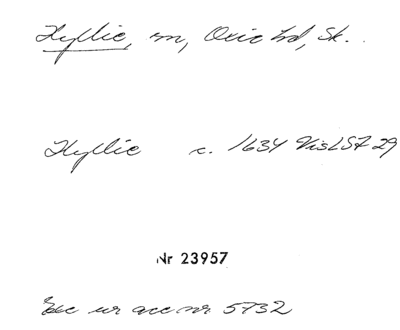 Hyllie, sn, Oxie hd, Sk.
Hyllie c. 1634 VisLSF 29
Nr 23957
Exc ur acc nr 5732